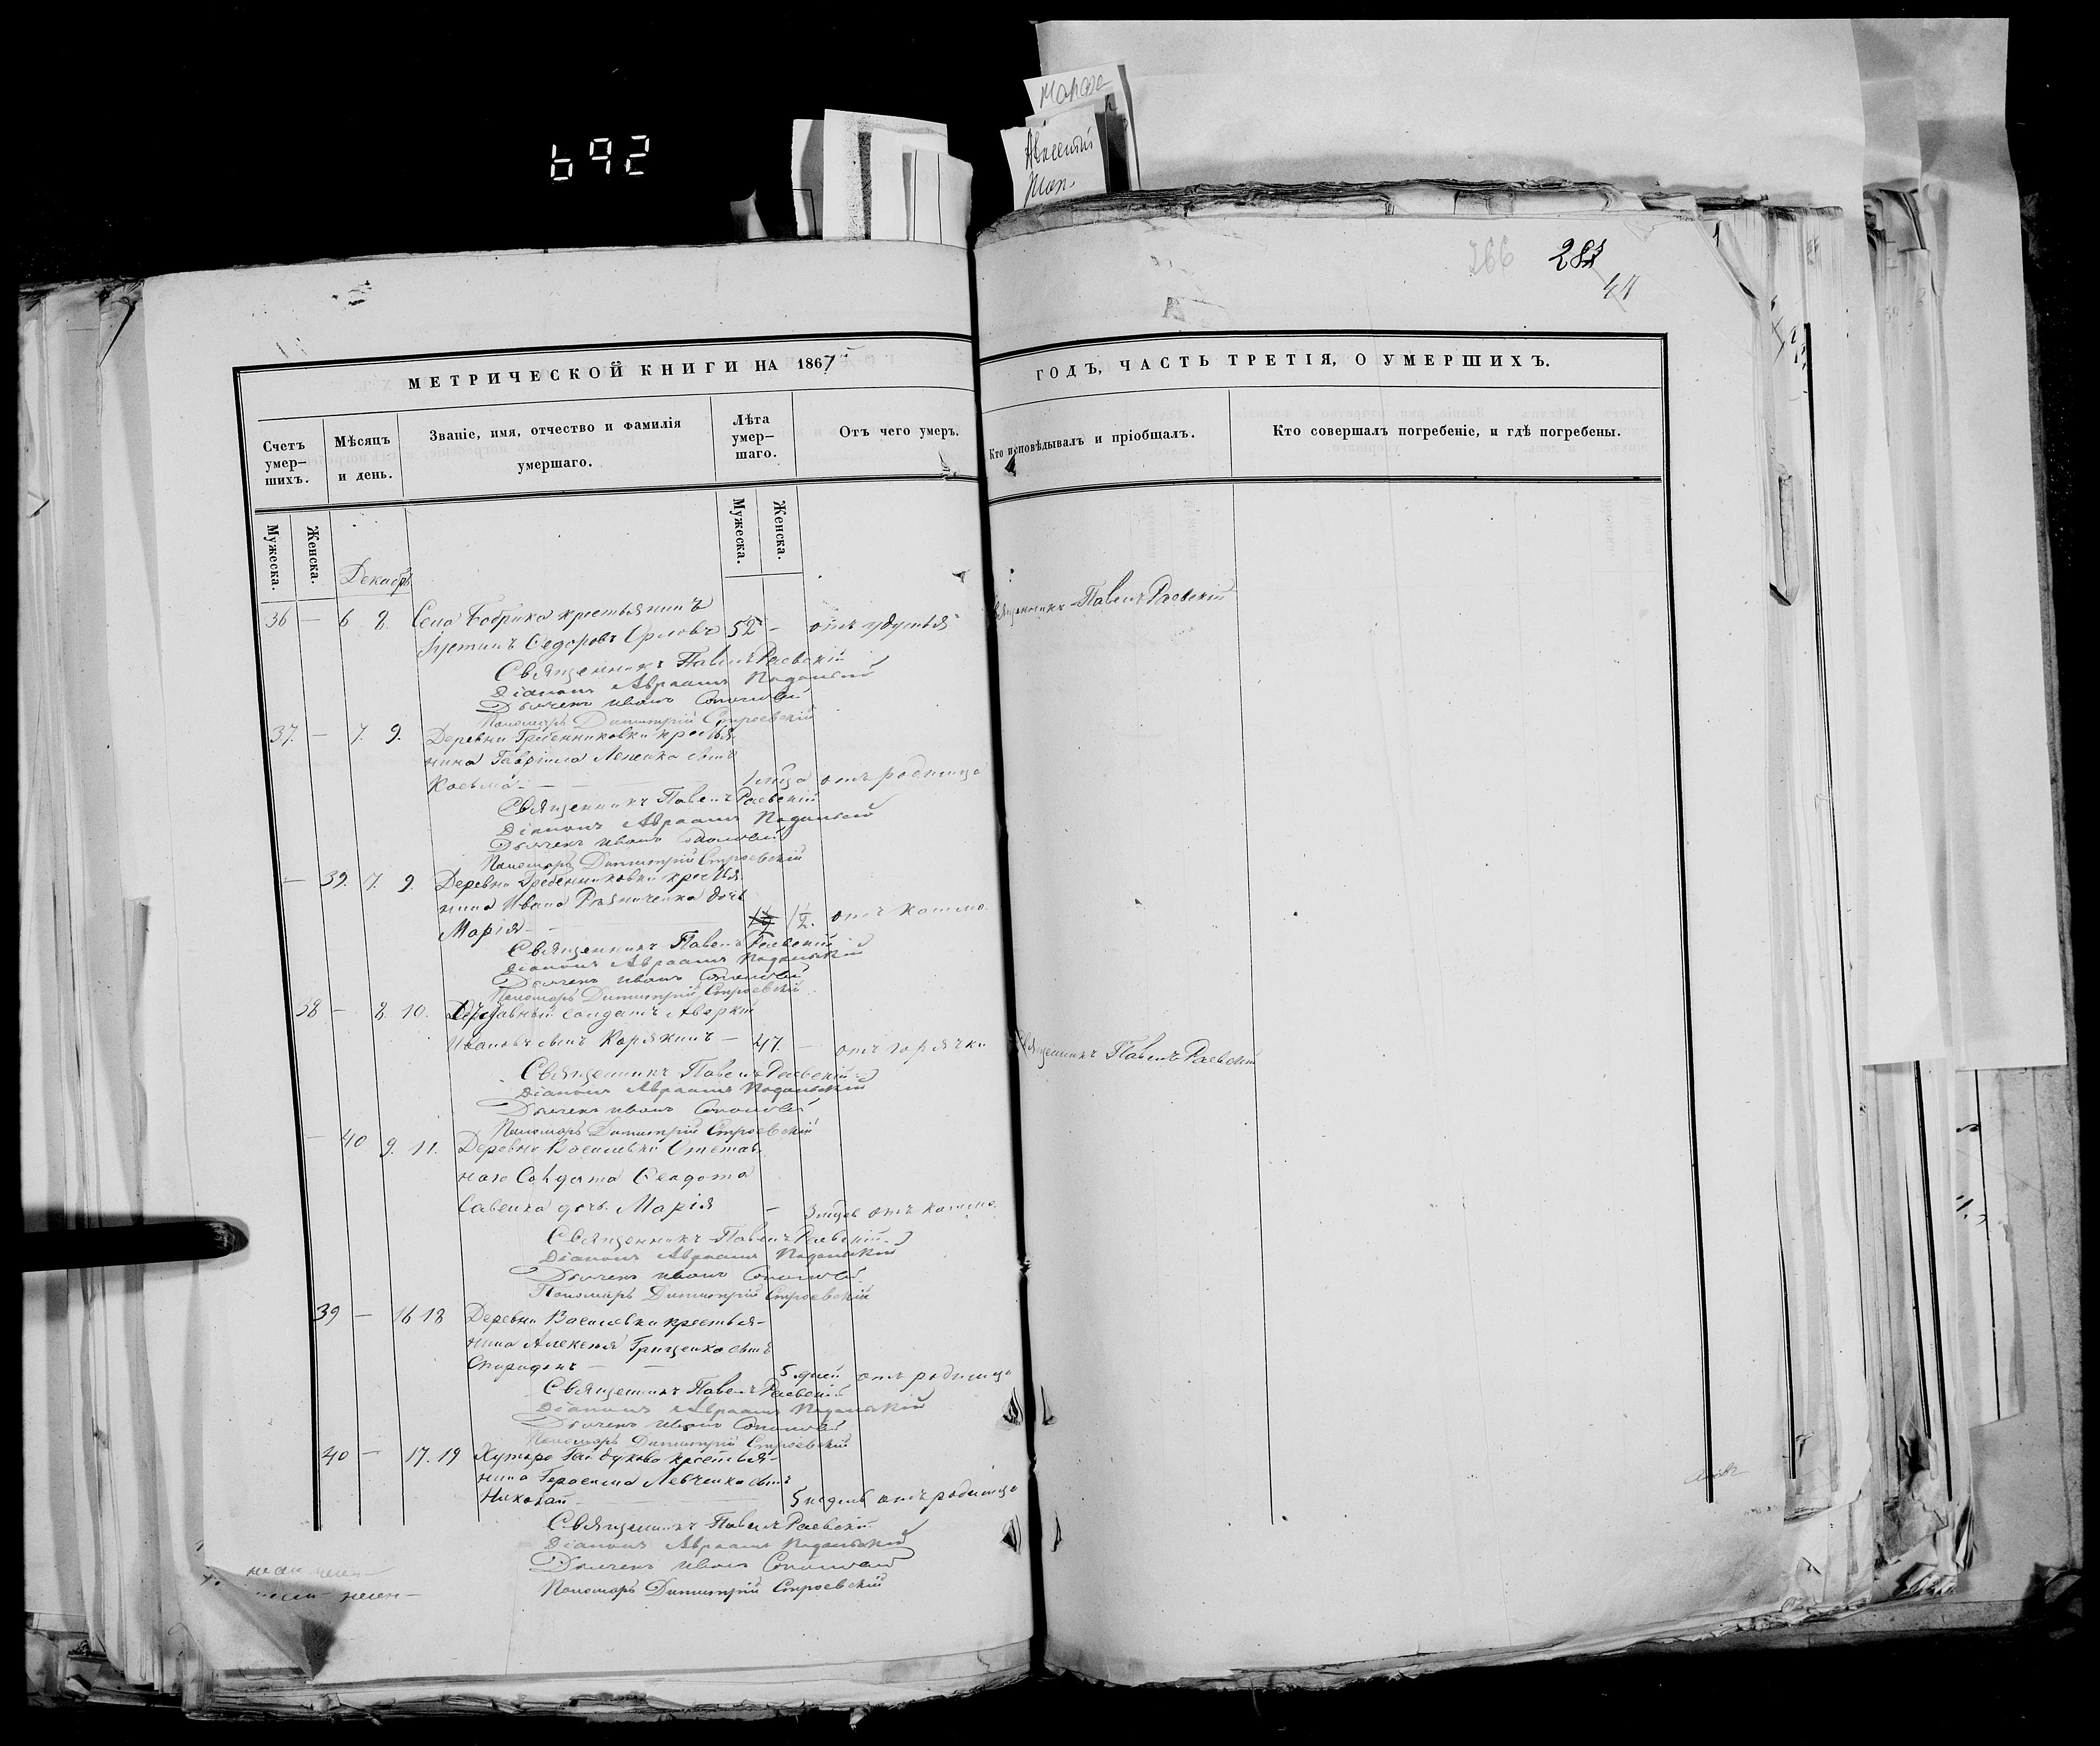 692
Авксентій
266 284
44
МЕТРИЧЕСКОЙ КНИГИ НА 1867
ГОДЪ, ЧАСТЬ ТРЕТІЯ, О УМЕРШИХЪ.
Счетъ умер-шихъ.
Мѣсяцъ и день.
Званіе, имя, отчество и фамилія умершаго.
Лѣта умер-шаго.
Отъ чего умеръ.
Кто исповѣдывалъ и пріобщалъ.
Кто совершалъ погребеніе, и гдѣ погребены.
Мужеска.
Женска.
Мужеска.
Женска.
Декабрь
36 — 6 8. Села Бобрика крестьянинъ
Іустинъ Ѳедоровъ Орловъ 52 — отъ удушья Священникъ Павелъ Раевскій
Священникъ Павелъ Раевскій
Діаконъ Авраамъ Подольскій
Дьячекъ Иванъ
Пономарь Димитрій Строевскій
37. — 7. 9. Деревни Гребенниковки кресть-
нина Гавріила сынъ
Косьма — 1 мѣца отъ родимца
Священникъ Павелъ Раевскій
Діаконъ Авраамъ Подольскій
Дьячекъ Иванъ
Пономарь Димитрій Строевскій
— 39. 7. 9. Деревни Гребенниковки кресть-
нина Ивана Рѣзниченка дочь
Марія — 1½. отъ кашля.
Священникъ Павелъ Раевскій
Діаконъ Авраамъ Подольскій
Дьячекъ Иванъ
Пономарь Димитрій Строевскій
38 — 8. 10. солдатъ Аверкій
Ивановъ сынъ Корякинъ — 47. — отъ горячки Священникъ Павелъ Раевскій
Священникъ Павелъ Раевскій
Діаконъ Авраамъ Подольскій
Дьячекъ Иванъ
Пономарь Димитрій Строевскій
— 40 9. 11. Деревни Василевки Отстав-
наго Солдата Ѳеодота
Савенка дочь Марія — 3 мѣцев отъ кашля.
Священникъ Павелъ Раевскій
Діаконъ Авраамъ Подольскій
Дьячекъ Иванъ
Пономарь Димитрій Строевскій
39 — 16 18 Деревни Василевки крестья-
нина Алексѣя Гриценка сынъ
Спиридонъ — 5 дней отъ родимца
Священникъ Павелъ Раевскій
Діаконъ Авраамъ Подольскій
Дьячекъ Иванъ
Пономарь Димитрій Строевскій
40 — 17. 19 Хутора Гайдукова крестья-
нина Герасима Левченка сынъ
Николай — 5 недель отъ родимца
Священникъ Павелъ Раевскій
Діаконъ Авраамъ Подольскій
Дьячекъ Иванъ
Пономарь Димитрій Строевскій